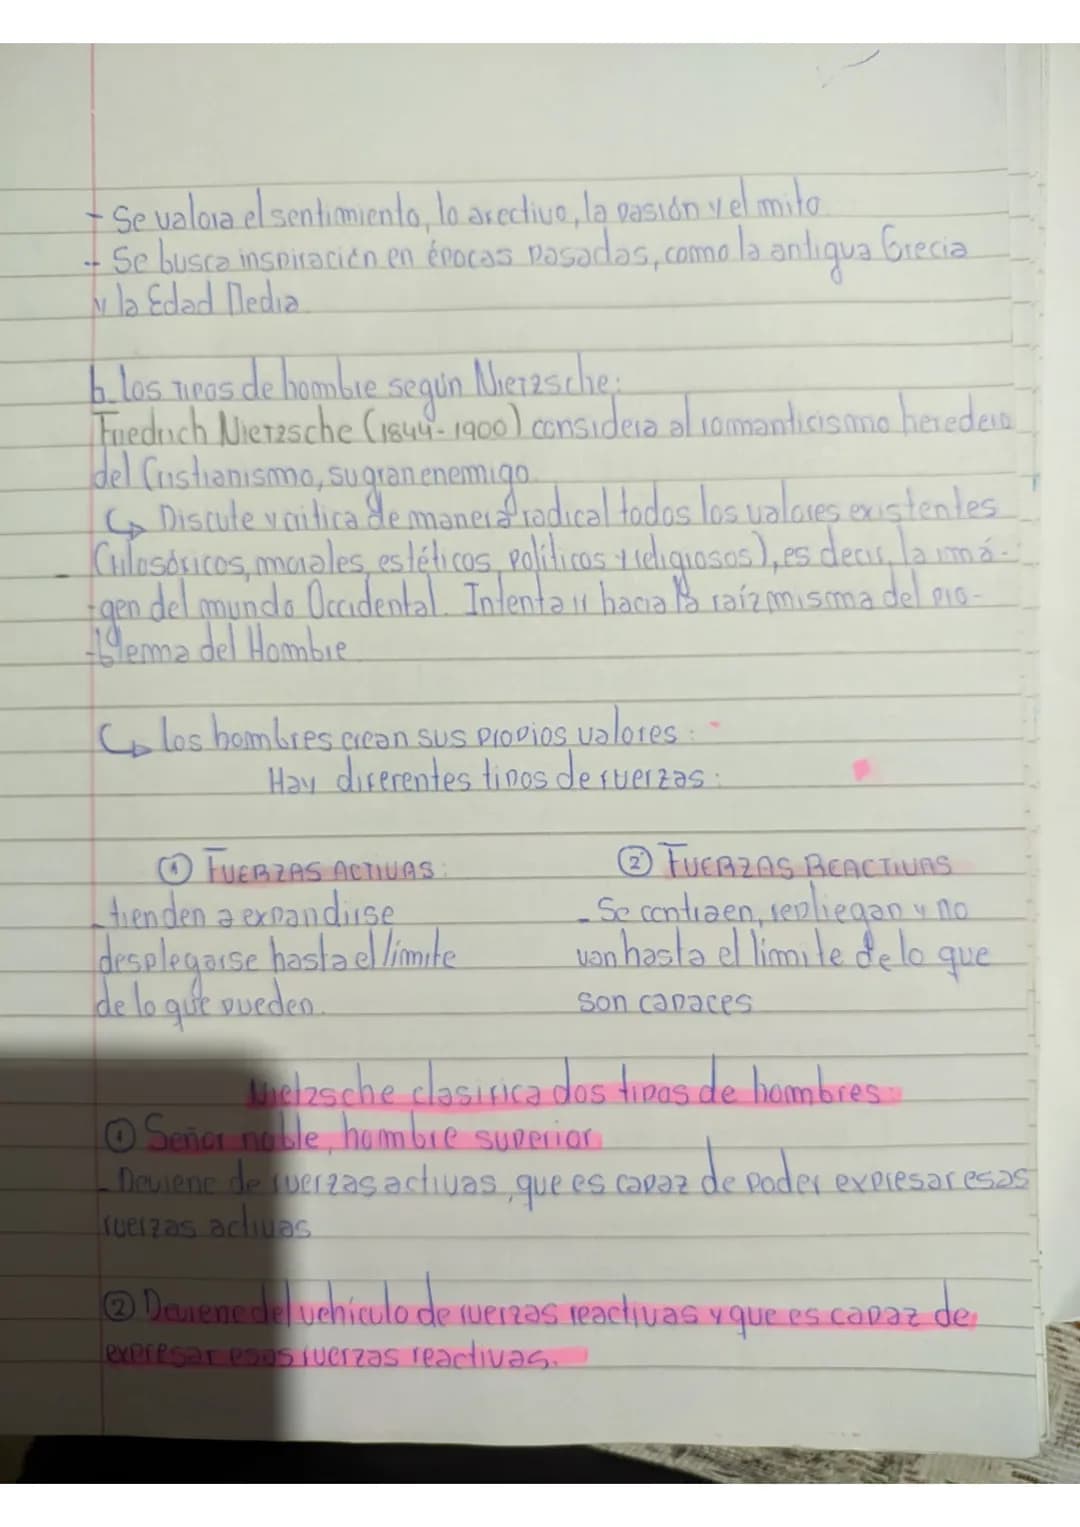 - Se valora el sentimiento, lo afectivo, la pasión y el mito.
- Se busca inspiración en épocas pasadas, como la antigua Grecia
y la Edad Media.
b. los TIPOS de hombre según Nietzsche:
Friedrich Nietzsche (1844-1900) considera al romanticismo heredero
del Cristianismo, su gran enemigo.
↳ Discute y critica de manera radical todos los valores existentes
(filosóficos, morales, estéticos, políticos y religiosos), es decir, la imá-
-gen del mundo Occidental. Intenta ir hacia la raíz misma del pro-
-blema del Hombre
↳ los hombres crean sus propios valores:
Hay diferentes tipos de fuerzas:
① FUERZAS ACTIVAS:
- tienden a expandirse
desplegarse hasta el límite
de lo que pueden.
② FUERZAS REACTIVAS
- Se contraen, repliegan y no
van hasta el límite de lo que
son capaces
Nietzsche clasifica dos tipos de hombres:
① Señor noble, hombre superior.
- Deviene de fuerzas activas, que es capaz de poder expresar esas
fuerzas activas
② Deviene del vehículo de fuerzas reactivas y que es capaz de
expresar esas fuerzas reactivas.